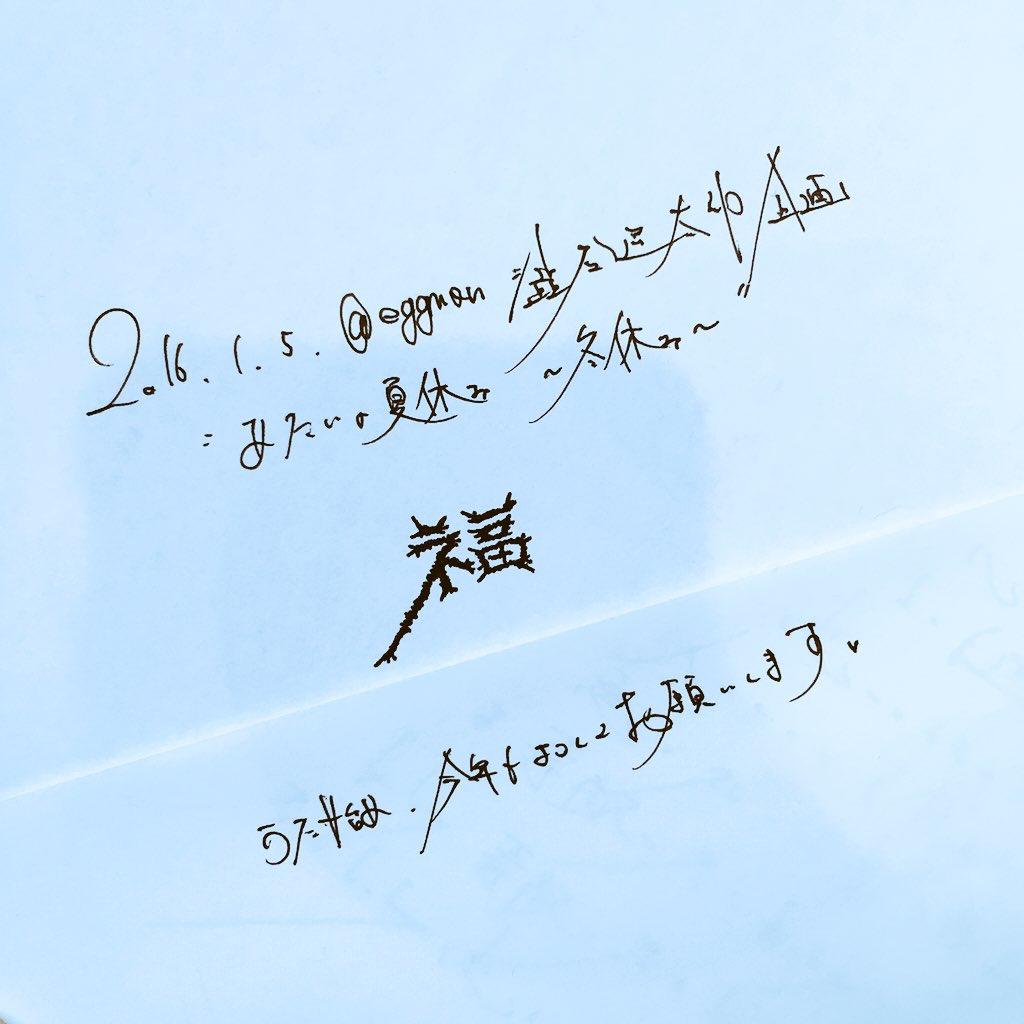 2016.1.5. @eggman 澁谷逆太郎企画
"みたいな夏休み ~冬休み~"
福
うた種、今年もよろしくお願いします。